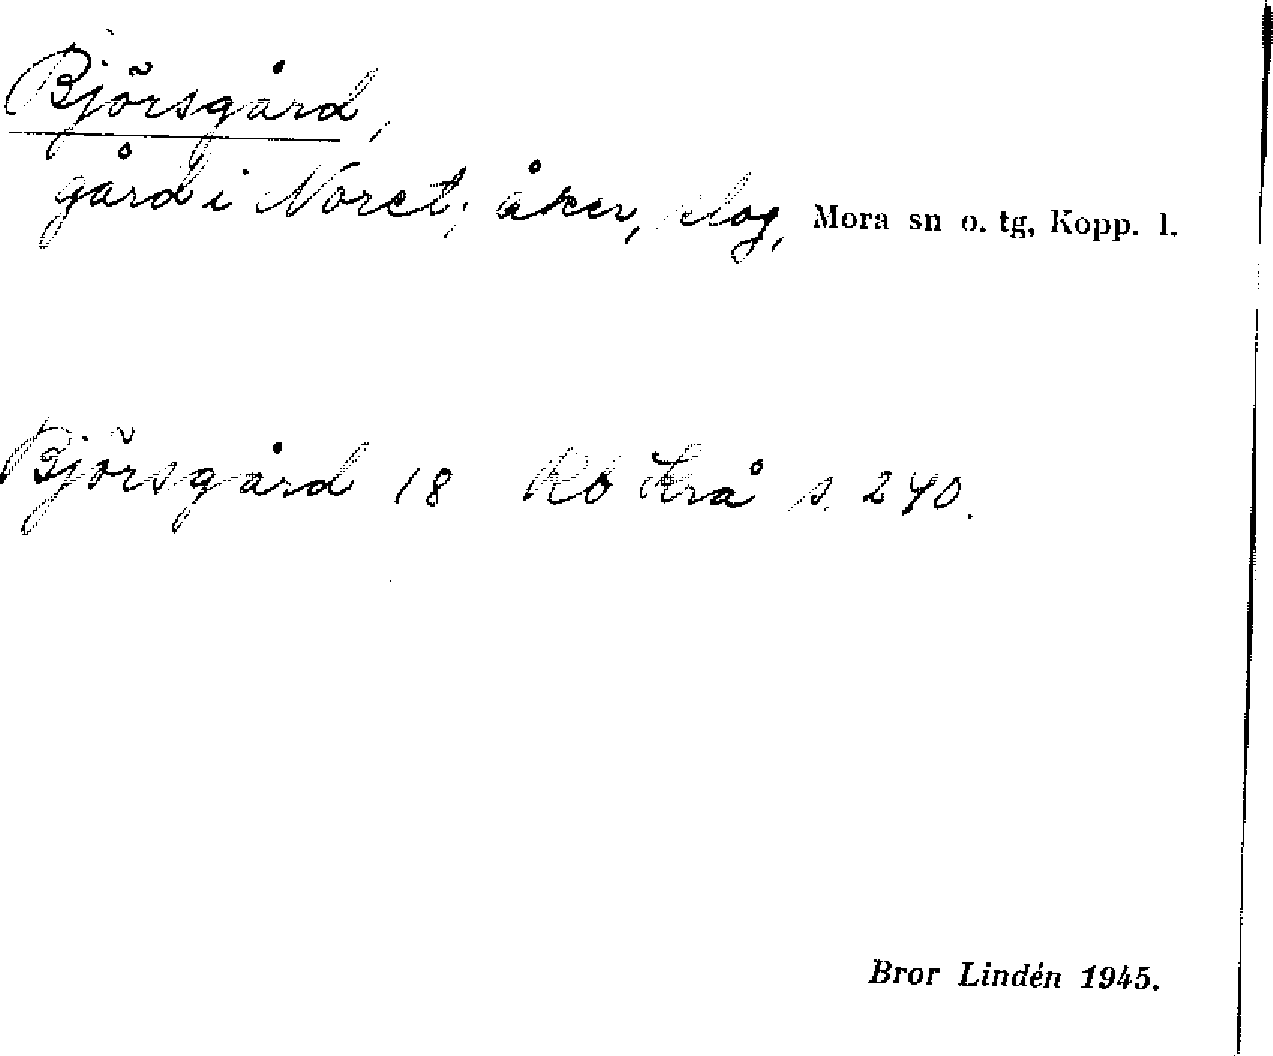 Björsgård,
gård i Noret; åker, slog, Mora sn o. tg, Kopp. l.
Björsgård 18 Rb Krå s. 240.
Bror Lindén 1945.